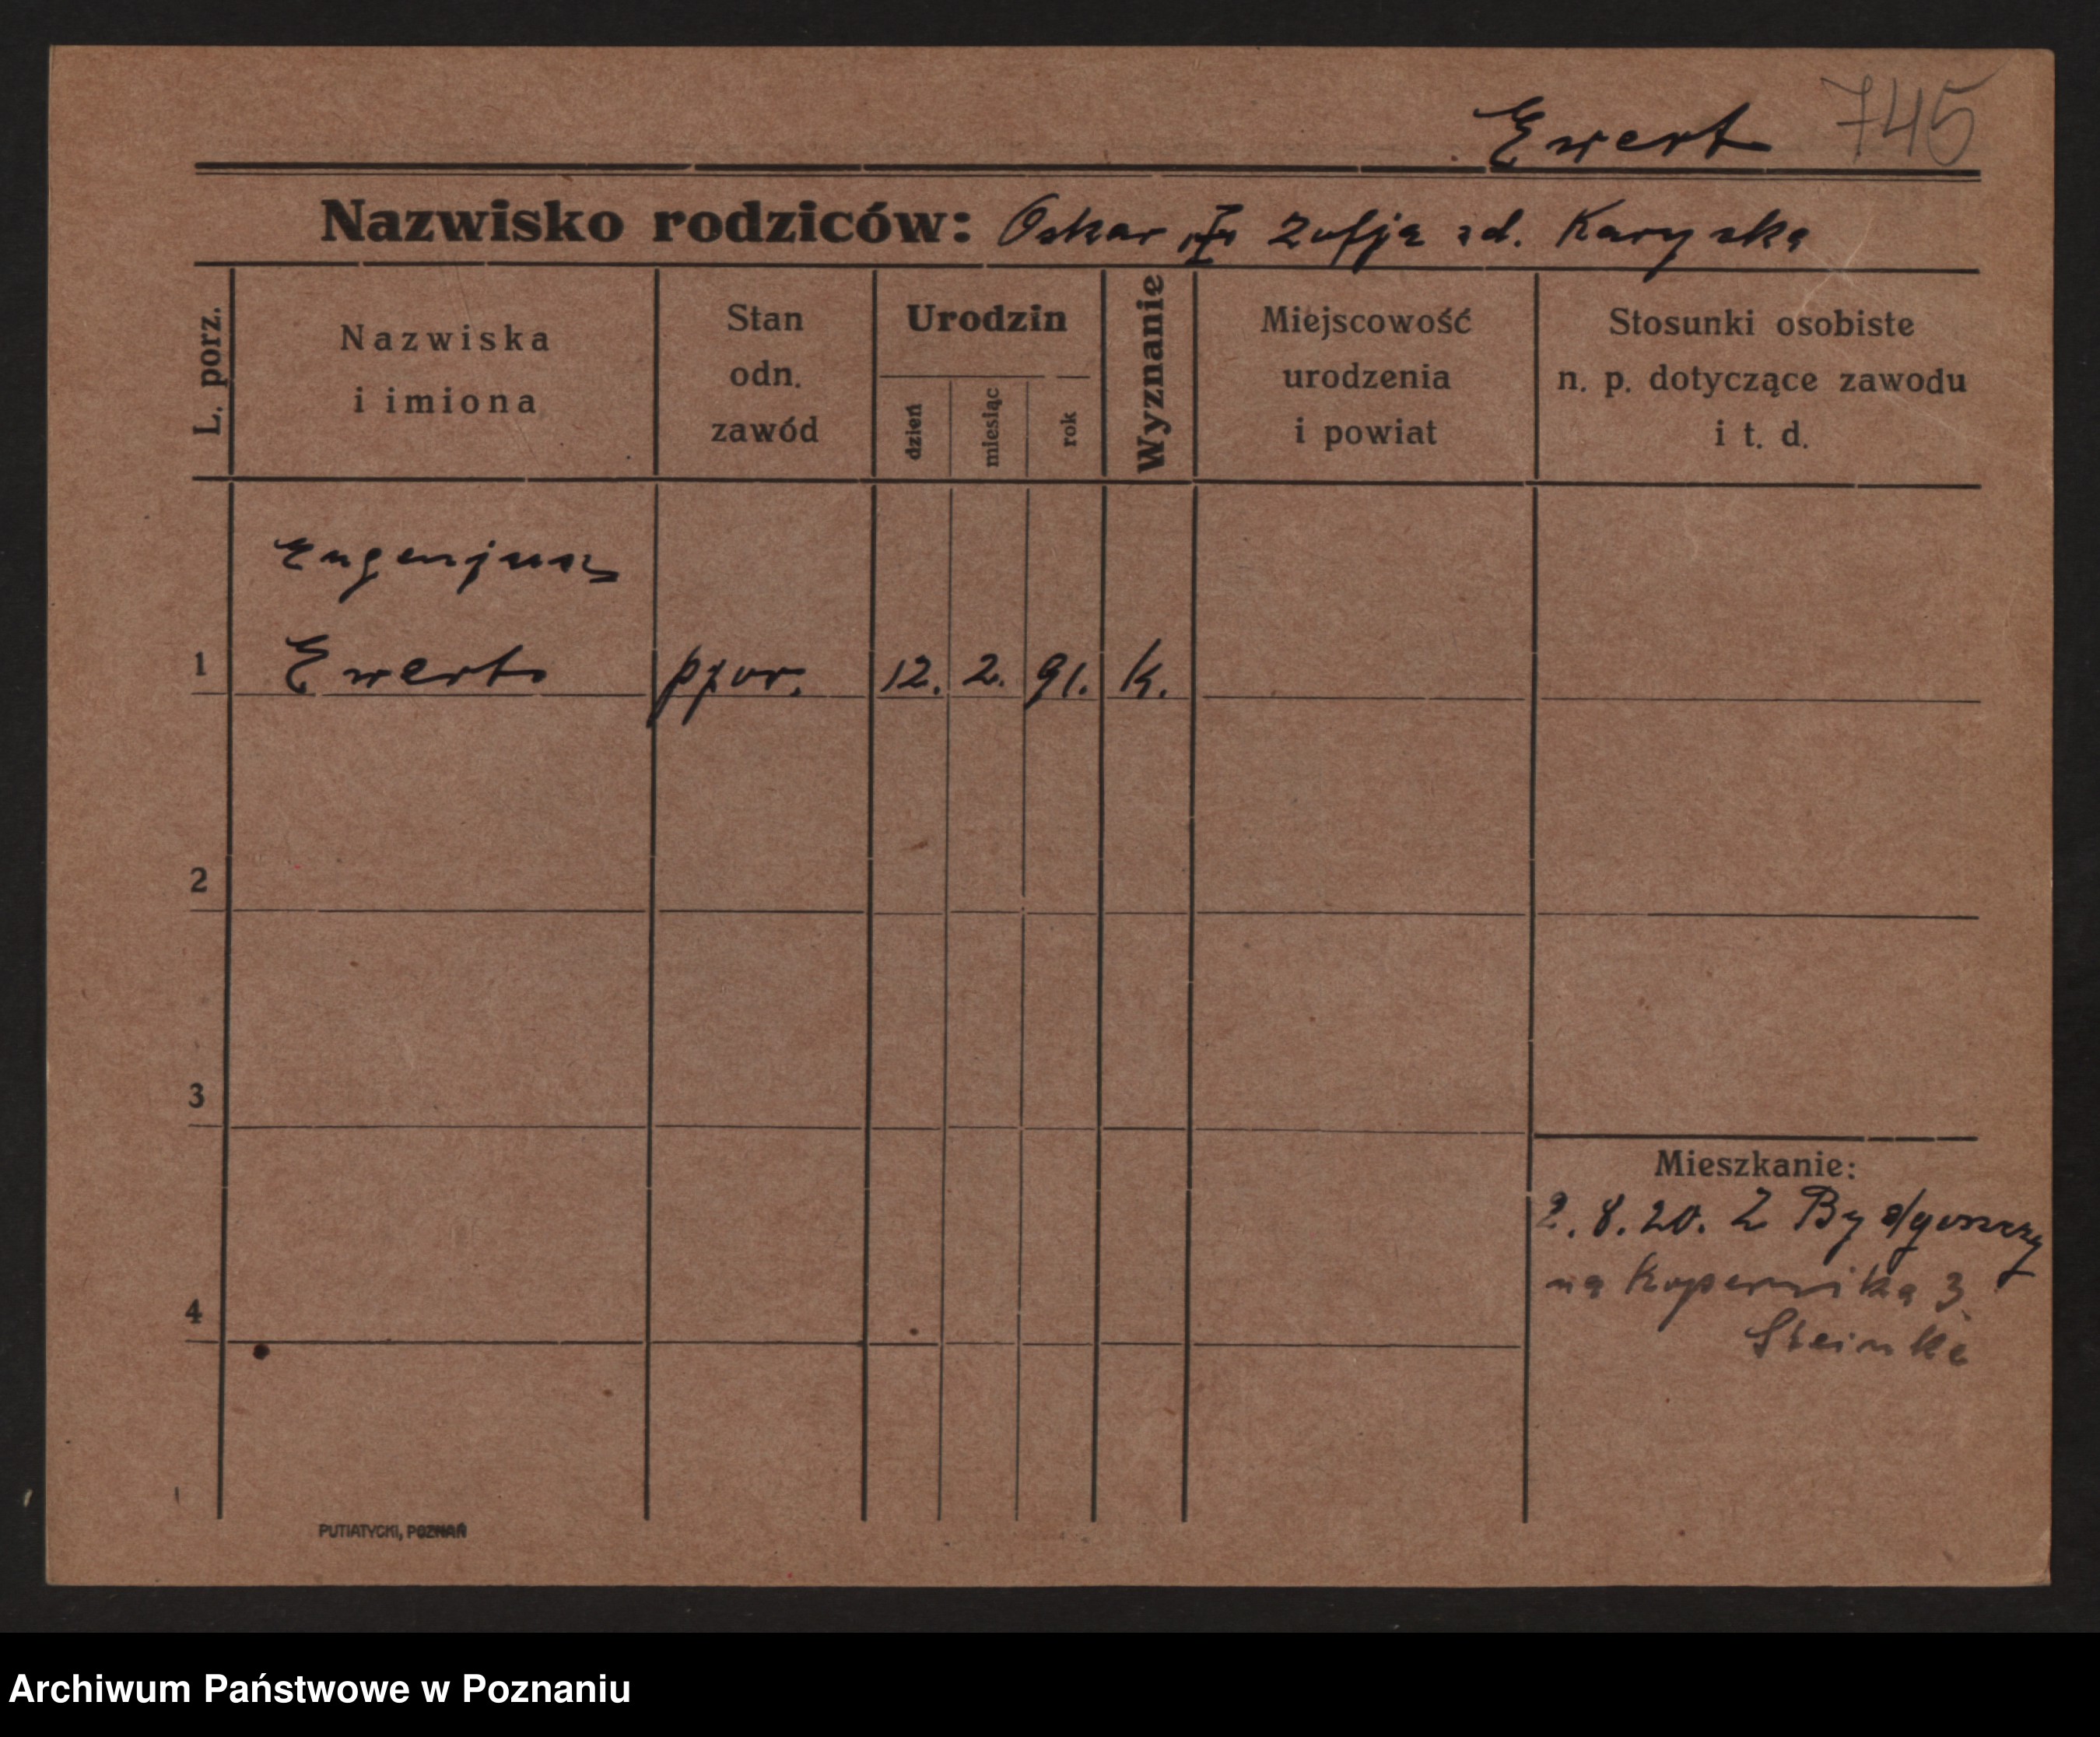 Ewert 745
Nazwisko rodziców: Oskar Zofja zd. Karyska
L. porz.
Nazwiska
i imiona
Stan
odn.
zawód
Urodzin
dzień
miesiąc
rok
Wyznanie
Miejscowość
urodzenia
i powiat
Stosunki osobiste
n. p. dotyczące zawodu
i t. d.
Eugenjusz
1 Ewert ppor. 12. 2. 91. K.
2
3
Mieszkanie:
2.8.20. Z Bydgoszczy
na Kopernika 3
4
Steinke
PUTIATYCKI, POZNAŃ
Archiwum Państwowe w Poznaniu